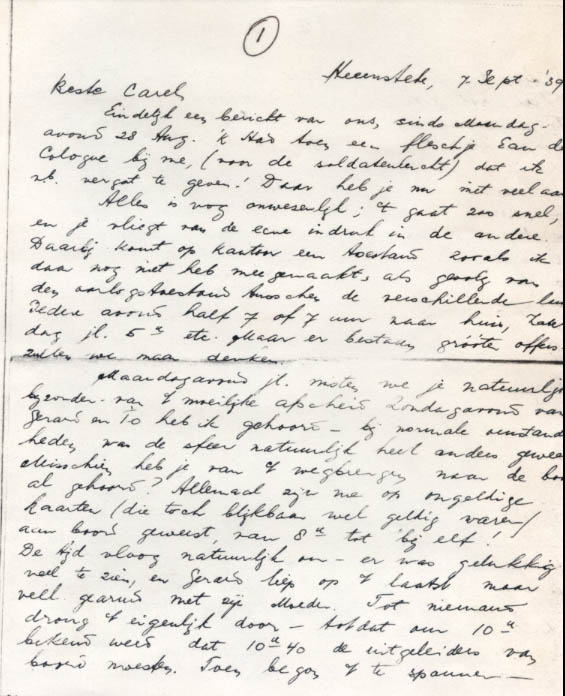 1
Heemstede, 7 Sept - '39
Beste Carel,
Eindelijk een bericht van ons, sinds Maandag-
avond 28 Aug. 'k Had toen een fleschje Eau de
Cologne bij me, (voor de soldatenlucht) dat ik
n.b. vergat te geven! Daar heb je nu niet veel aan
Alles is nog onwezenlijk; 't gaat zoo snel,
en je vliegt van de eene indruk in de andere.
Daarbij komt op kantoor een toestand zooals ik
daar nog niet heb meegemaakt, als gevolg van
den oorlogstoestand tusschen de verschillende
Iedere avond half 7 of 7 uur naar huis, Zater
dag jl. 5 u etc. Maar er bestaan grooter offers
zullen we maar denken.
Maandagavond jl. misten we je natuurlijk
bijzonder. van 't moeilijke afscheid Zondagavond van
Gerard en To heb ik gehoord - bij normale omstandig
heden was de sfeer natuurlijk heel anders geweest
Misschien heb je van 't wegbrengen naar de boot
al gehoord? Allemaal zijn we op ongeldige
kaarten (die toch blijkbaar wel geldig waren)
aan boord geweest, van 8 u tot bij elf!
De tijd vloog natuurlijk om - er was gelukkig
veel te zien, en Gerard liep op 't laatst maar
veel gearmd met zijn Moeder. Tot niemand
drong 't eigenlijk door - totdat om 10 u
bekend werd dat 10 u 40 de uitgeleiders van
boord moesten. Toen begon 't te spannen -